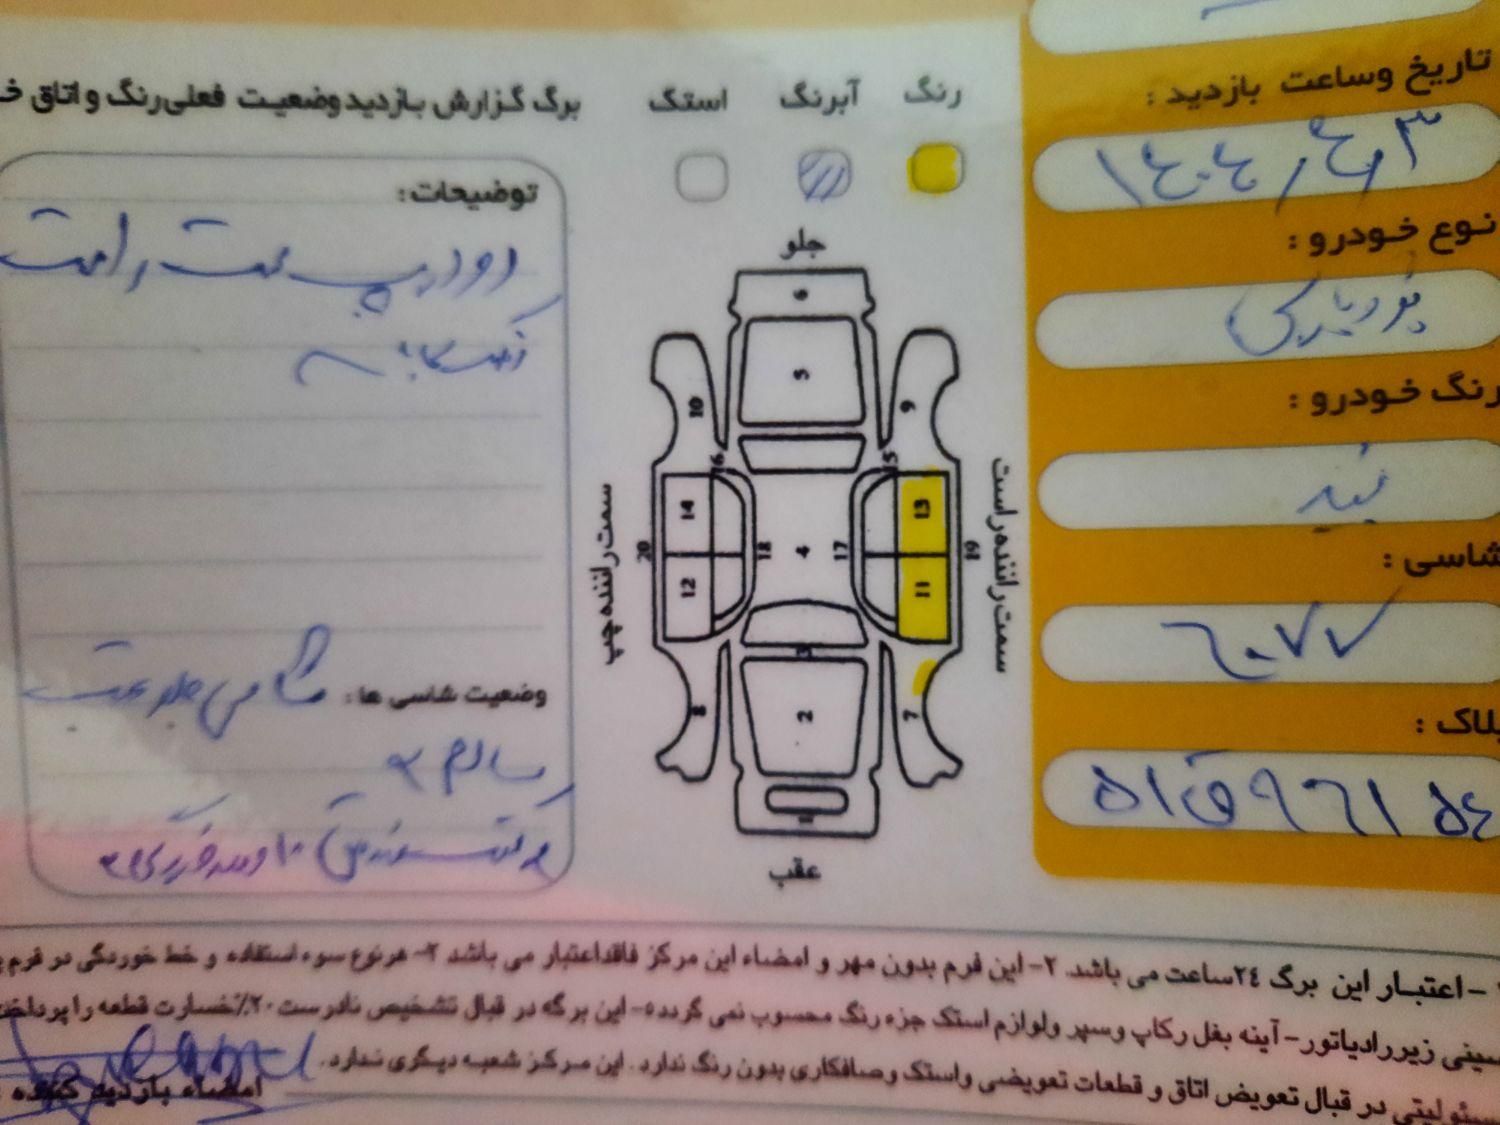 تاریخ وساعت بازدید :
۱۴۰۴/۴/۳
نوع خودرو :
رنگ خودرو :
سفید
شاسی :
۶۰۷۷
پلاک :
۵۱ق۹۶۱ ۵۴
رنگ
آبرنگ
استک
برگ گزارش بازدید وضعیت فعلی رنگ و اتاق
جلو
6
5
10
9
16
15
14
13
سمت راننده چپ
20
18
4
17
19
سمت راننده راست
12
11
3
8
2
7
1
عقب
توضیحات:
دو درب سمت راست
وضعیت شاسی ها:
سالم
- اعتبار این برگ ۲۴ساعت می باشد. ۲- این فرم بدون مهر و امضاء این مرکز فاقداعتبار می باشد ۳- هرنوع سوء استفاده و خط خوردگی در فرم
سینی زیررادیاتور- آینه بغل رکاپ وسپر ولوازم استک جزء رنگ محسوب نمی گردد۵- این برگه در قبال تشخیص نادرست ۲۰٪خسارت قطعه را پرداخت
در قبال تعویض اتاق و قطعات تعویضی واستک وصافکاری بدون رنگ ندارد. این مرکز شعبه دیگری ندارد.
امضاء بازدید کننده